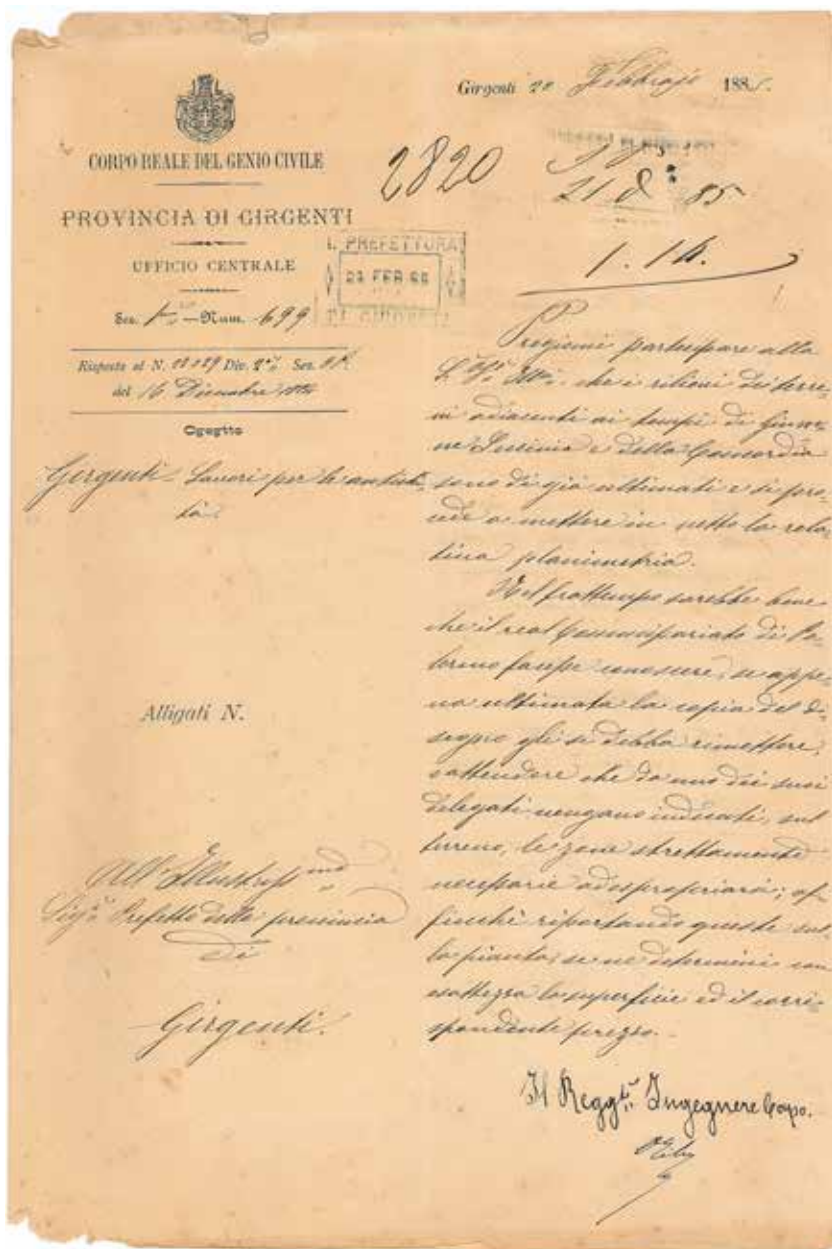 Girgenti 20 Febbrajo 1885.
CORPO REALE DEL GENIO CIVILE
PROVINCIA DI GIRGENTI
UFFICIO CENTRALE
Sez. 1ª - Num. 699
Risposta al N. Div. 2ª Sez.
del 16 Dicembre 1884
Oggetto
Girgenti - Lavori per le antichi-
tà.
Alligati N.
All'Illustriss.mo
Sig.r Prefetto della provincia
di
Girgenti.
2820
21 85
1.14.
PREFETTURA
21 FEB
DI GIRGENTI
Pregiomi partecipare alla
S.V. Ill. che i rilievi dei terre-
ni adiacenti ai tempi di Giuno-
ne Lucinia e della Concordia
sono di già ultimati e si pro-
cede a mettere in netto la rela-
tiva planimetria.
Nel frattempo sarebbe bene
che il real Commissariato di Pa-
lermo facesse conoscere, se appe-
na ultimata la copia del di-
segno gli si debba rimettere,
o attendere che da uno dei suoi
delegati vengano indicati, sul
terreno, le zone strettamente
necessarie ad espropriarsi; af-
finchè riportando queste sul-
la pianta, se ne determini con
esattezza la superficie ed il corri-
spondente prezzo.
Il Regg.te Ingegnere Capo.